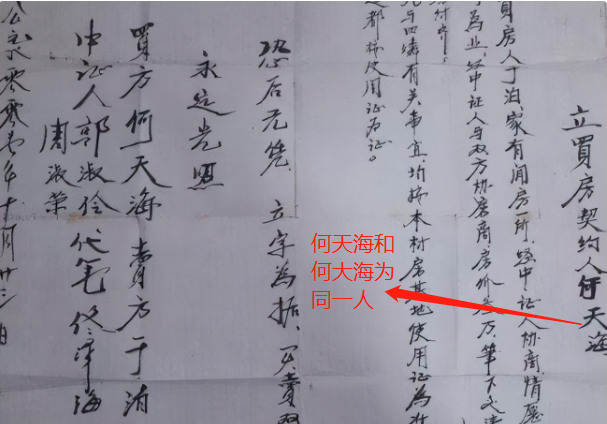 立買房契约人何天海
買房人丁泊,家有闲房一所,经中证人协商情愿
为业,经中证人与双方协商房价 万,笔下交清
与四邻有关事宜,均按本村房基地使用证为准
都按使用证为证。
恐后无凭 立字为据,买卖双
永远光照
買方何天海 賣方于泊
中证人郭淑伶代笔佟军海
周淑荣
公元零零 年十月廿三日
何天海和
何大海为
同一人